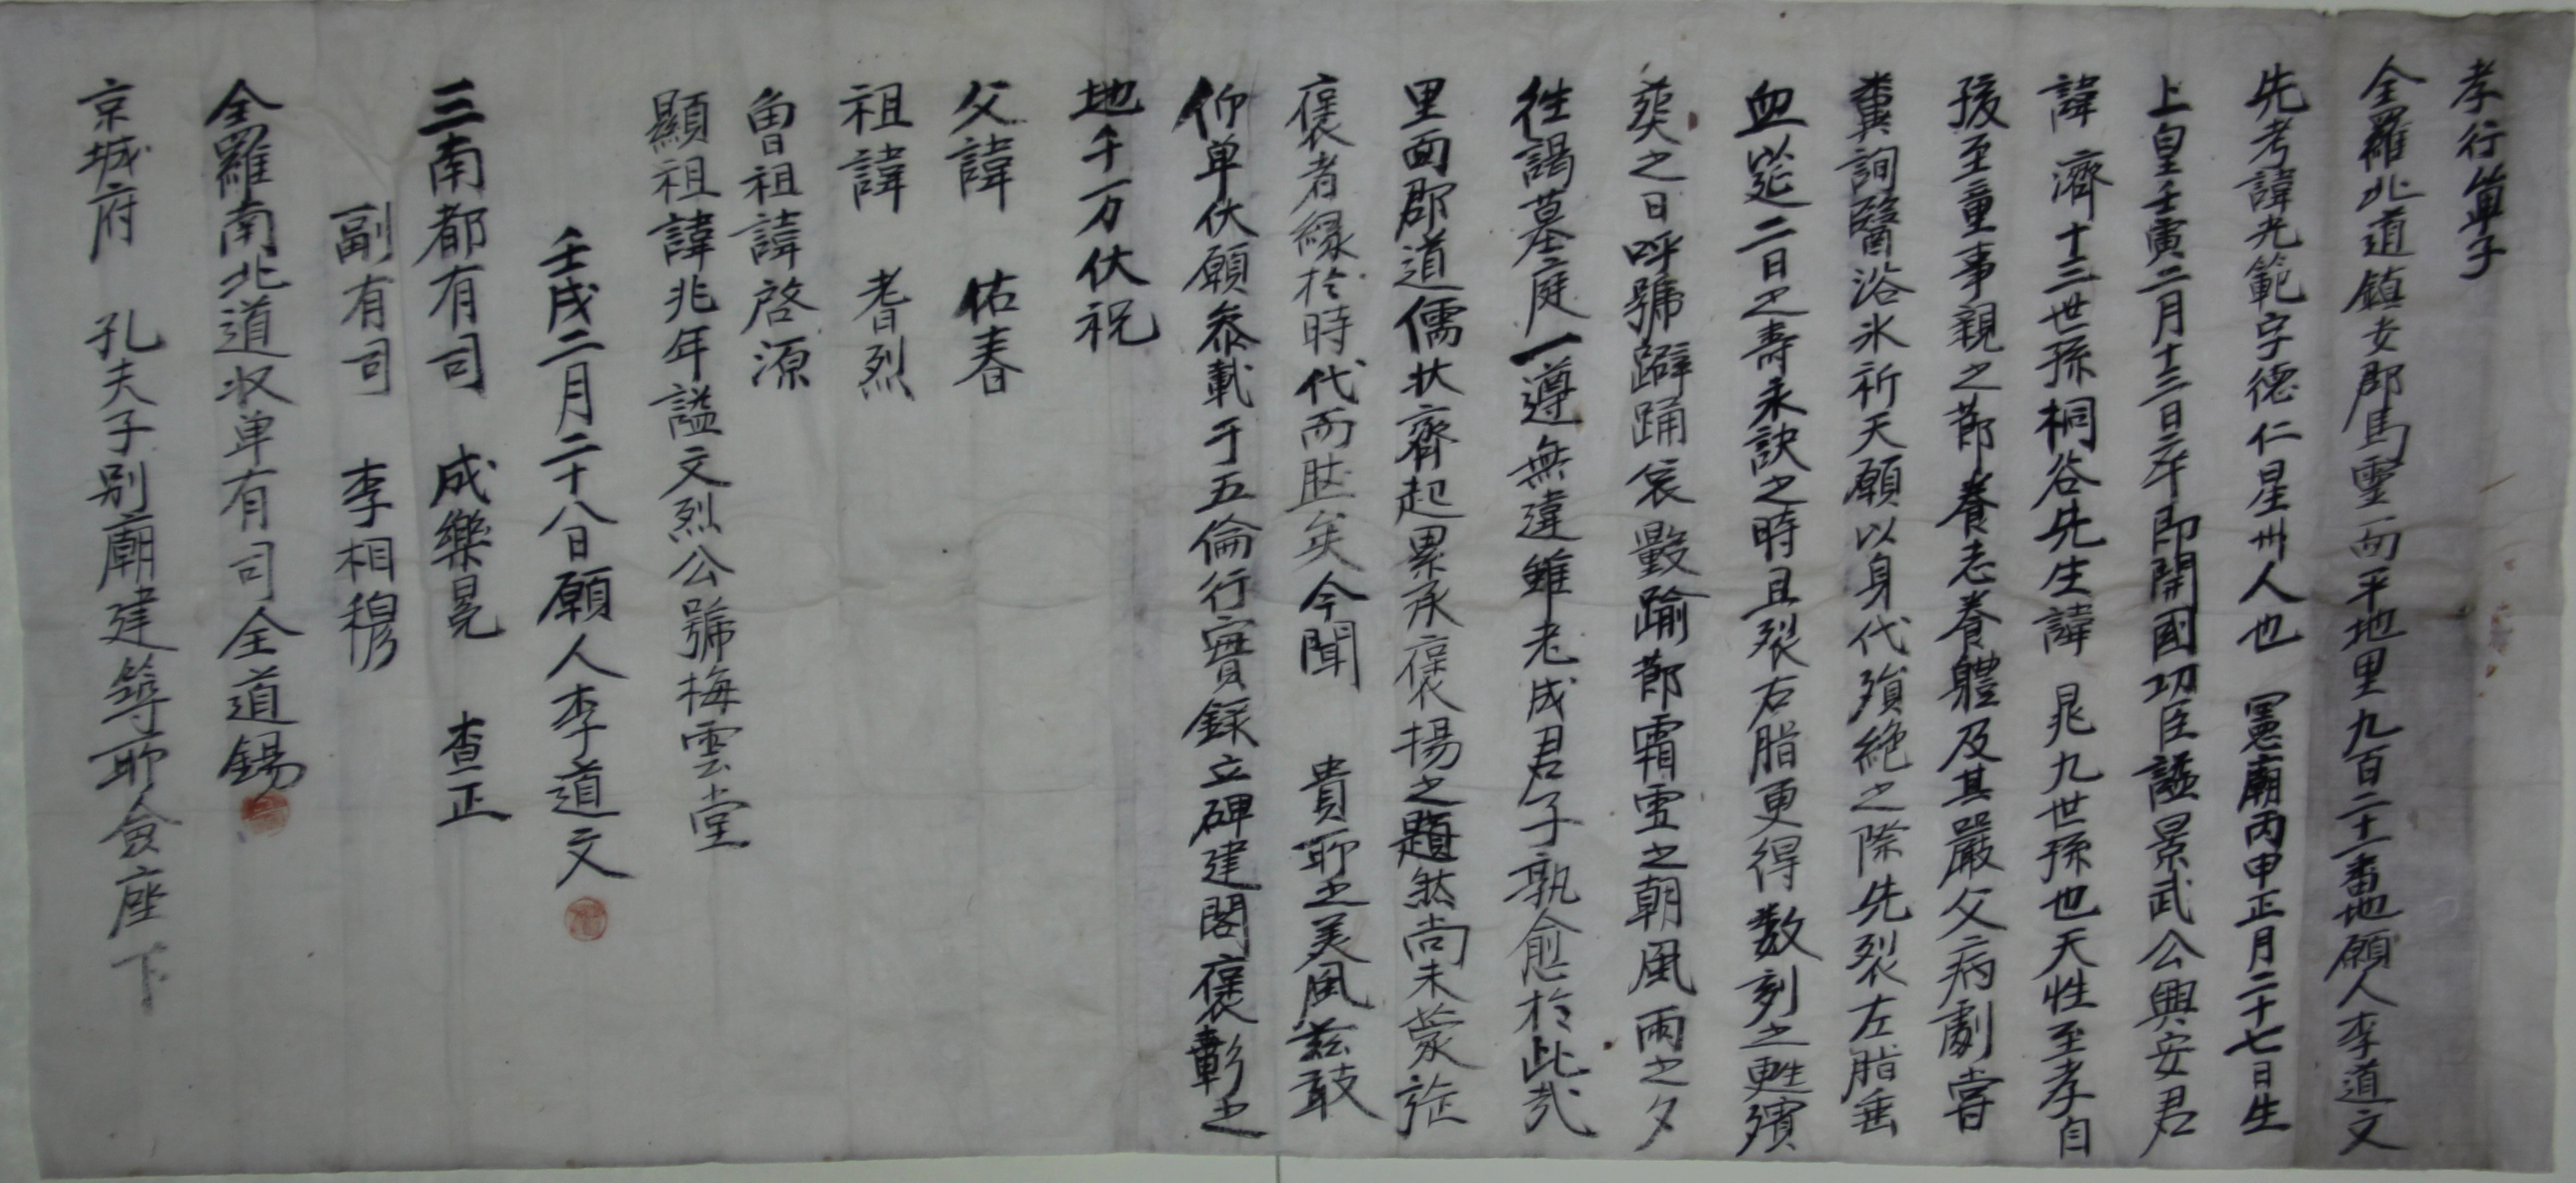 孝行單子
全羅北道鎮安郡馬靈面平地里九百二十一番地願人李道文
先考諱光範字德仁星州人也 憲廟丙申正月二十七日生
上皇壬寅二月十三日卒即開國功臣諡景武公興安君
諱 濟十三世孫桐谷先生諱 晁九世孫也天性至孝自
孩至童事親之節養志養體及其嚴父病劇嘗
糞詢醫浴氷祈天願以身代殞絶之際先裂左脂垂
血延二日之壽永訣之時且裂右脂更得數刻之甦殯
葬之日呼號躃踊哀毀踰節霜雪之朝風雨之夕
徃謁墓庭一遵無違雖老成君子孰愈於此哉
里面郡道儒狀齊起累承褒揚之題然尚未蒙旌
褒者緣於時代而然矣今聞 貴所之美風玆敢
仰單伏願叅載于五倫行實錄立碑建閣褒彰之
地千万伏祝
父諱 佑春
祖諱 耆烈
曾祖諱啓源
顯祖諱兆年諡文烈公號梅雲堂
壬戌二月二十八日願人李道文
三南都有司 成樂冕 查正
副有司 李相穆
全羅南北道収单有司全道錫
京城府 孔夫子別廟建築所僉座下